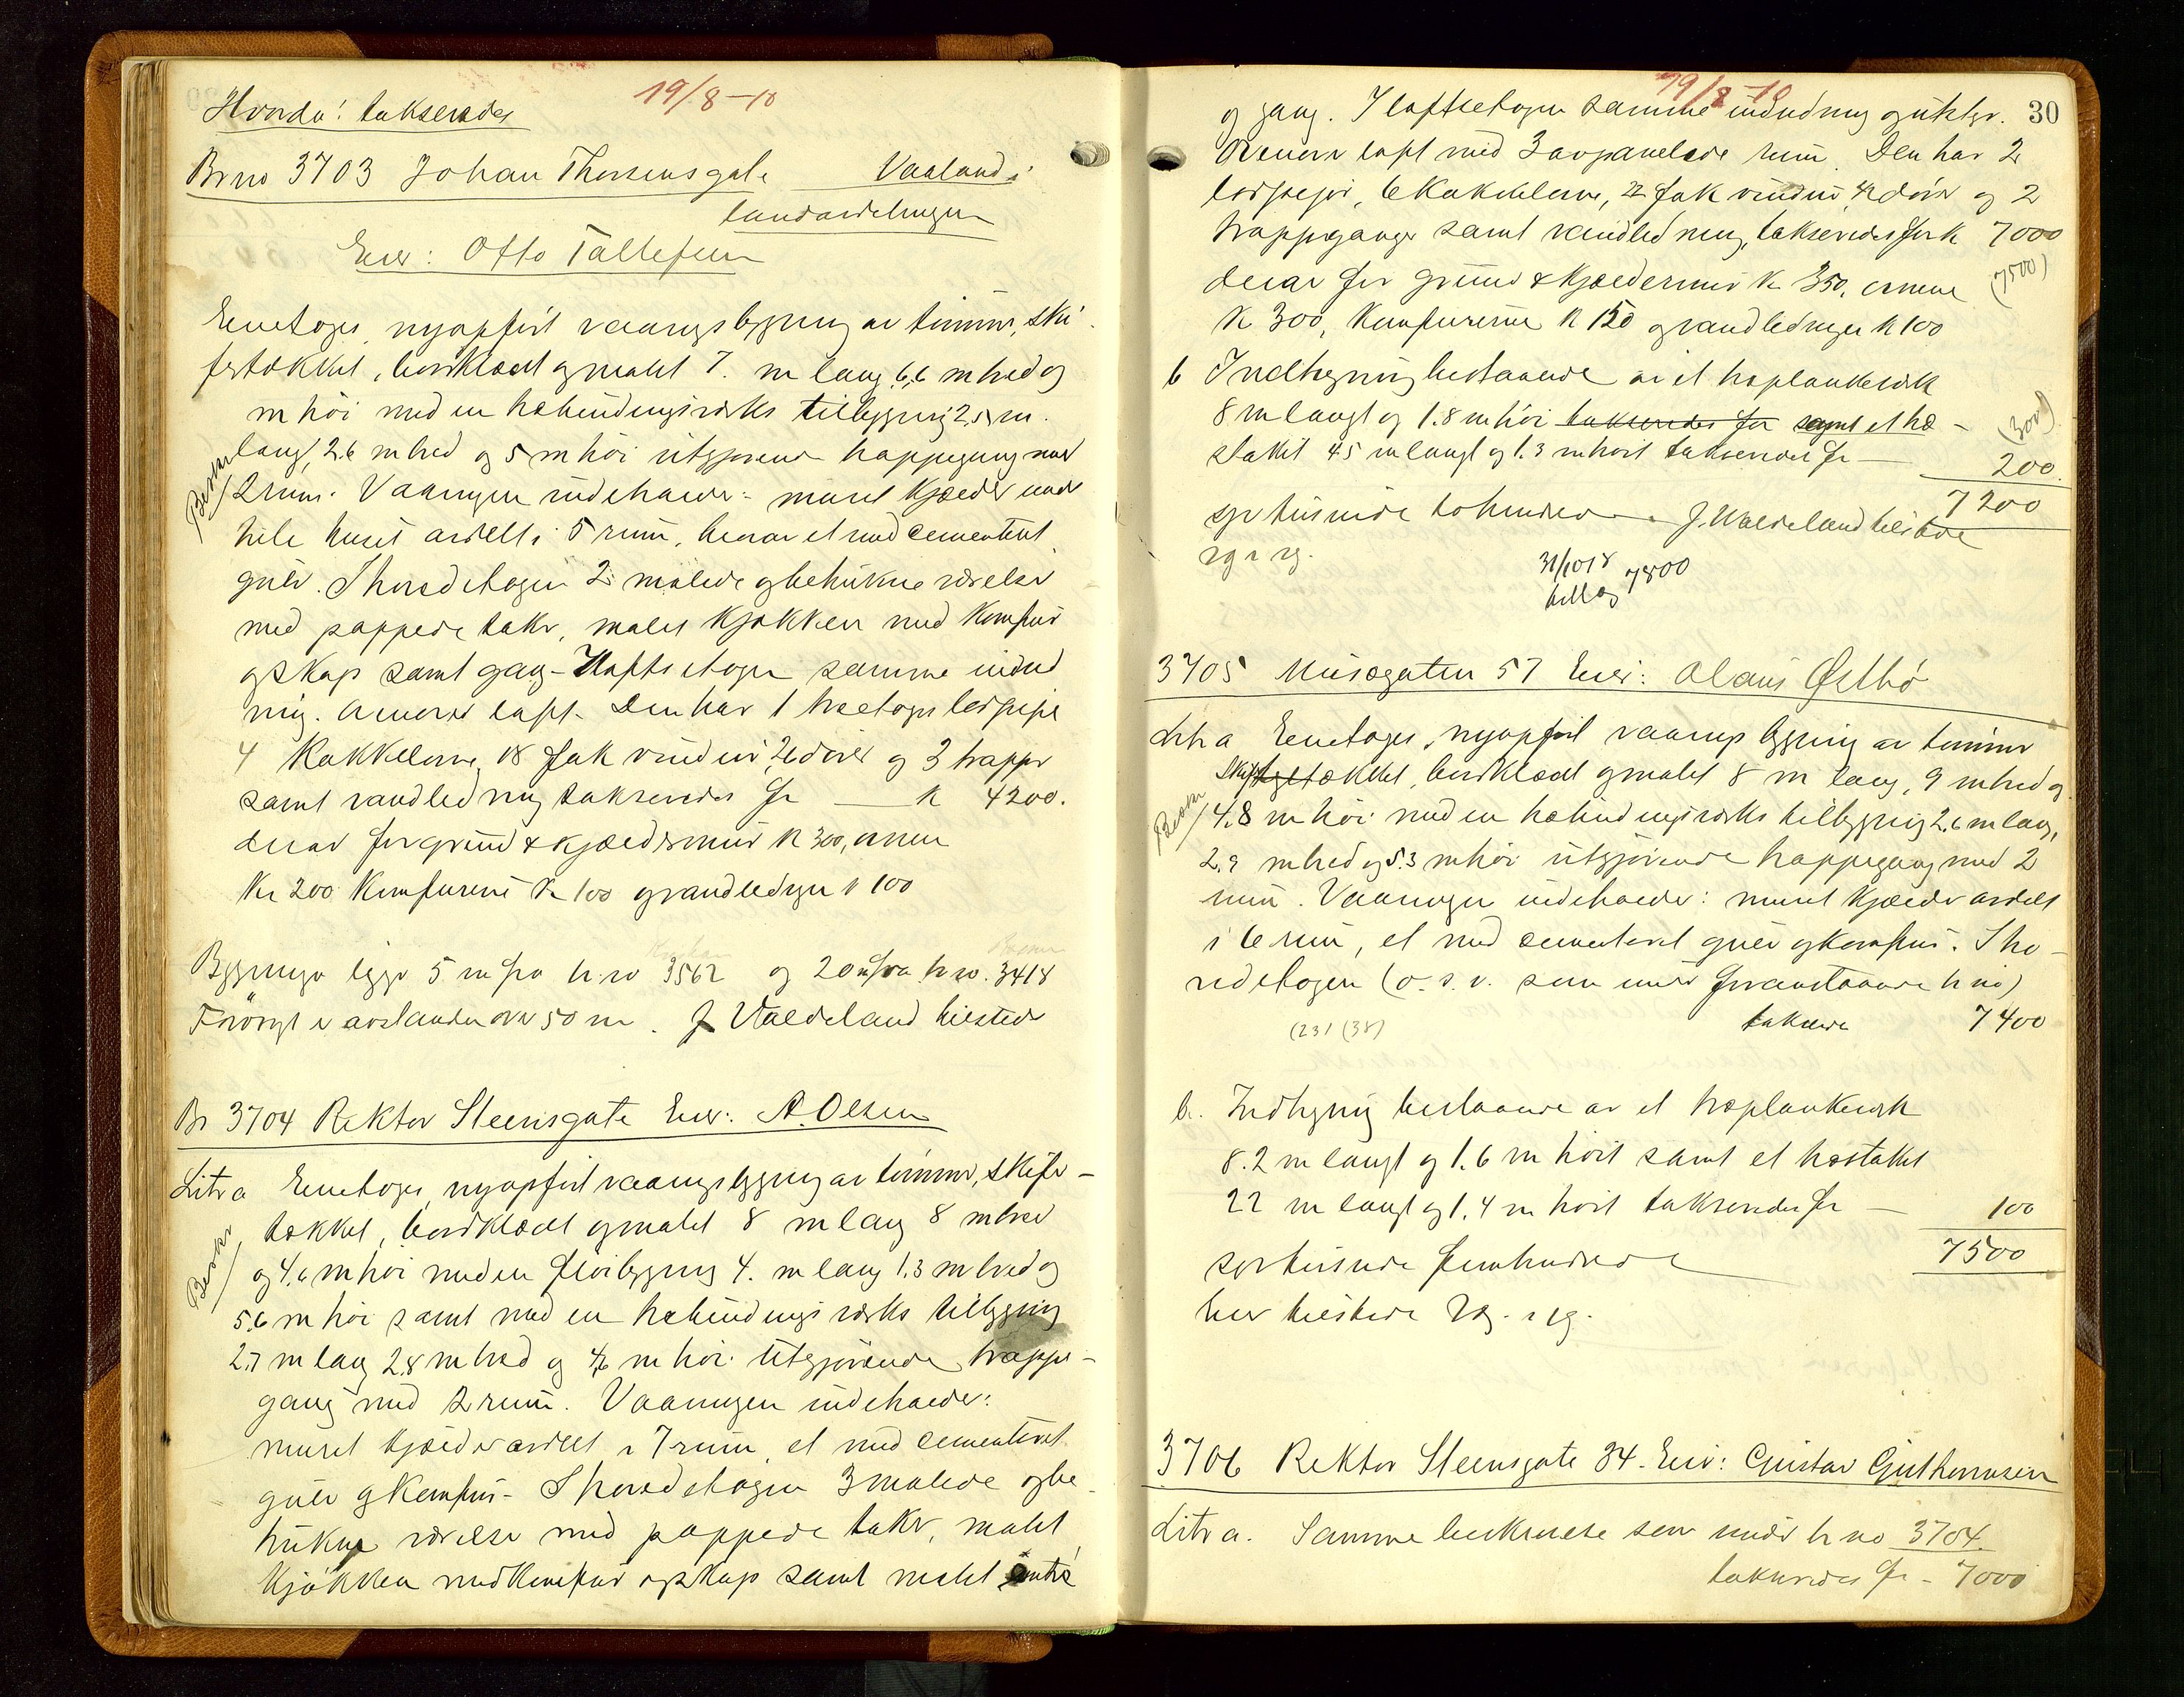 19/8-10
Hvorda: takseredes
Br no 3703 Johan Thorsensgate Vaaland i
landavdelingen
Eier: Otto Tallefsen
Eenetages nyopført vaaningsbygning av tømmer, ski-
fertækket, bordklædt og malet 7. m lang 6,6 m bred og
m høi med en træbindingsverks tilbygning 2,5 m.
lang, 2.6 m bred og 5 m høi utgjørende trappegang med
2 rum. Vaaningen indeholder: muret kjælder under
hele huset avdelt i 5 rum, hvorav et med cementert
gulv. I hovedetagen 2 malede og betrukne værelser
med pappede take, malet kjøkken med komfur
og skap samt gang - I loftsetagen samme indred
ning. Øverst loft. Den har 1 træetages lerpipe
4 kakkelovne, 18 fak vinduer, 26 dører og 3 trapper
samt vandledning takseredes for — k 4200.
derav for grund & kjældermur k 300, ovnene
Kr 200 Komfurene k 100 og vandledngen k 100
Bygningen ligger 5 m fra br. no 3562 og 20 m fra br. no. 3418
Forøvrigt er avstanden over 50 m. J Waldeland tilstede
Br 3704 Rektor Steensgate Eier: A. Olsen
Litr a Eenetages, nyopført vaaningsbygning av tømmer, skifer-
tækket, bordklædt og malet 8 m lang 8 m bred
og 4,6 m høi med en fløibygning 4. m lang 1.3 m bred og
5.6 m høi samt med en træbindingsverks tilbygning
2.7 m lang 2.8 m bred og 4,6 m høi utgjørende trappe-
gang med 2 rum. Vaaningen indeholder:
muret kjælder avdelt i 7 rum, et med cementeret
gulv og komfur - I hovedetagen 3 malede og be-
trukne værelser med pappede take, malet
kjøkken med komfur og skap samt malet entré
19/8-10
30
og gang. I loftsetagen samme indredning og utstyr.
Øverst loft med 3 avpanelede rum. Den har 2
lerpiper, 6 kakkelovne, 22 fak vinduer, 42 dører og 2
trappganger samt vandledning, takseredes for k 7000
derav for grund & kjældermur k 350, ovnene (7500)
k 300, Komfurerne k 150 og vandledngen k 100
b Indhegning bestaaende av et træplankeverk
8 m langt og 1.8 m høi takseredes for samt et træ- (300)
stakit 45 m langt og 1.3 m høit takseredes for — 200.
7200
syv tusinde tohundrede J. Waldeland tilstede
31/10 18 7800
tillæg
3705 Musegaten 57 Eier: Olaus Østbø
Litr a Eenetages, nyopført vaaningsbygning av tømmer
skifertækket, bordklædt og malet 8 m lang, 9 m bred og
4.8 m høi med en træbindingsverks tilbygning 2.6 m lang,
2.9 m bred og 5.3 m høi utgjørende trappegang med 2
rum. Vaaningen indeholder: muret kjælder avdelt
i 6 rum, et med cementeret gulv og komfur. I ho-
vedetagen (o. s. v. som under foranstaaende br no)
(23) (38) taksere 7400
b. Indhegning bestaaende av et træplankeverk
8.2 m langt og 1.6 m høit samt et træstakit
22 m langt og 1.4 m høit takseredes for — 100
7500
syv tusinde femhundrede
eier tilstede
3706 Rektor Steensgate 34. Eier: Gustav Guthormsen
Litr a. Samme beskrivelse som under br no 3704.
takseredes for - 7000